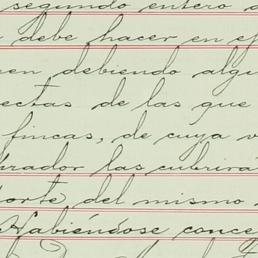 segundo entero
debe hacer en ef
en debiendo algu
ectas de las que
fincas, de cuya v
rador las cubrirá
orte del mismo
Habiéndose conce